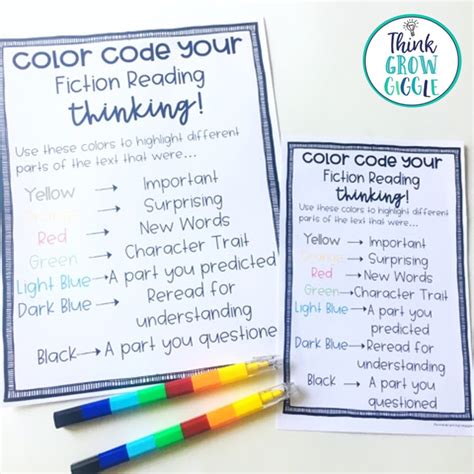 Think
GROW
GIGGLE
Color Code Your
Fiction Reading
thinking!
Use these colors to highlight different
parts of the text that were...
Yellow → Important
Orange → Surprising
Red → New Words
Green → Character Trait
Light Blue → A part you predicted
Dark Blue → Reread for
understanding
Black → A part you questione
Color Code Your
Fiction Reading
thinking!
Use these colors to highlight different
parts of the text that were...
Yellow → Important
Orange → Surprising
Red → New Words
Green → Character Trait
Light Blue → A part you
predicted
Dark Blue → Reread for
understanding
Black → A part you
questioned